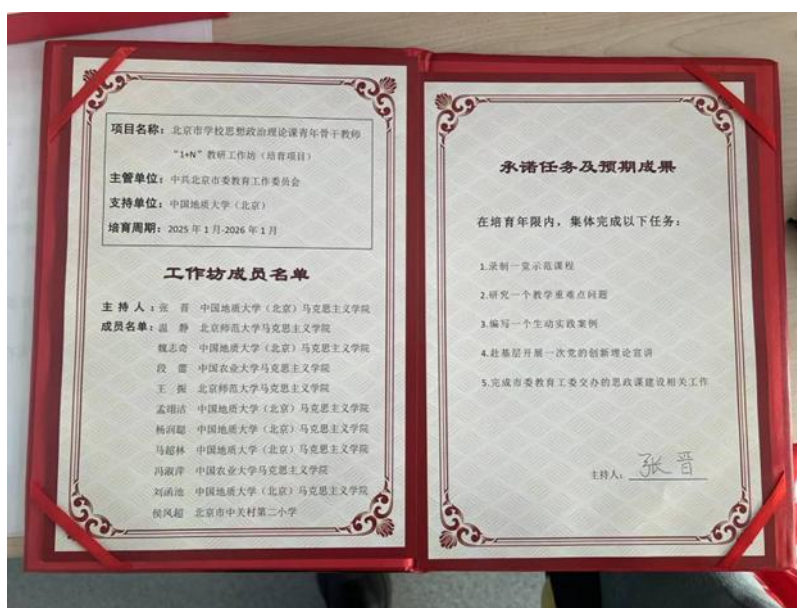 项目名称：北京市学校思想政治理论课青年骨干教师
“1+N”教研工作坊（培育项目）
主管单位：中共北京市委教育工作委员会
支持单位：中国地质大学（北京）
培育周期：2025年1月-2026年1月
工作坊成员名单
主 持 人：张 晋 中国地质大学（北京）马克思主义学院
成员名单：温 静 北京师范大学马克思主义学院
魏志奇 中国地质大学（北京）马克思主义学院
段 蕾 中国农业大学马克思主义学院
王 振 北京师范大学马克思主义学院
孟翊洁 中国地质大学（北京）马克思主义学院
杨润聪 中国地质大学（北京）马克思主义学院
马超林 中国地质大学（北京）马克思主义学院
冯淑萍 中国农业大学马克思主义学院
刘函池 中国地质大学（北京）马克思主义学院
侯风超 北京市中关村第二小学
承诺任务及预期成果
在培育年限内，集体完成以下任务：
1.录制一堂示范课程
2.研究一个教学重难点问题
3.编写一个生动实践案例
4.赴基层开展一次党的创新理论宣讲
5.完成市委教育工委交办的思政课建设相关工作
主持人：张晋